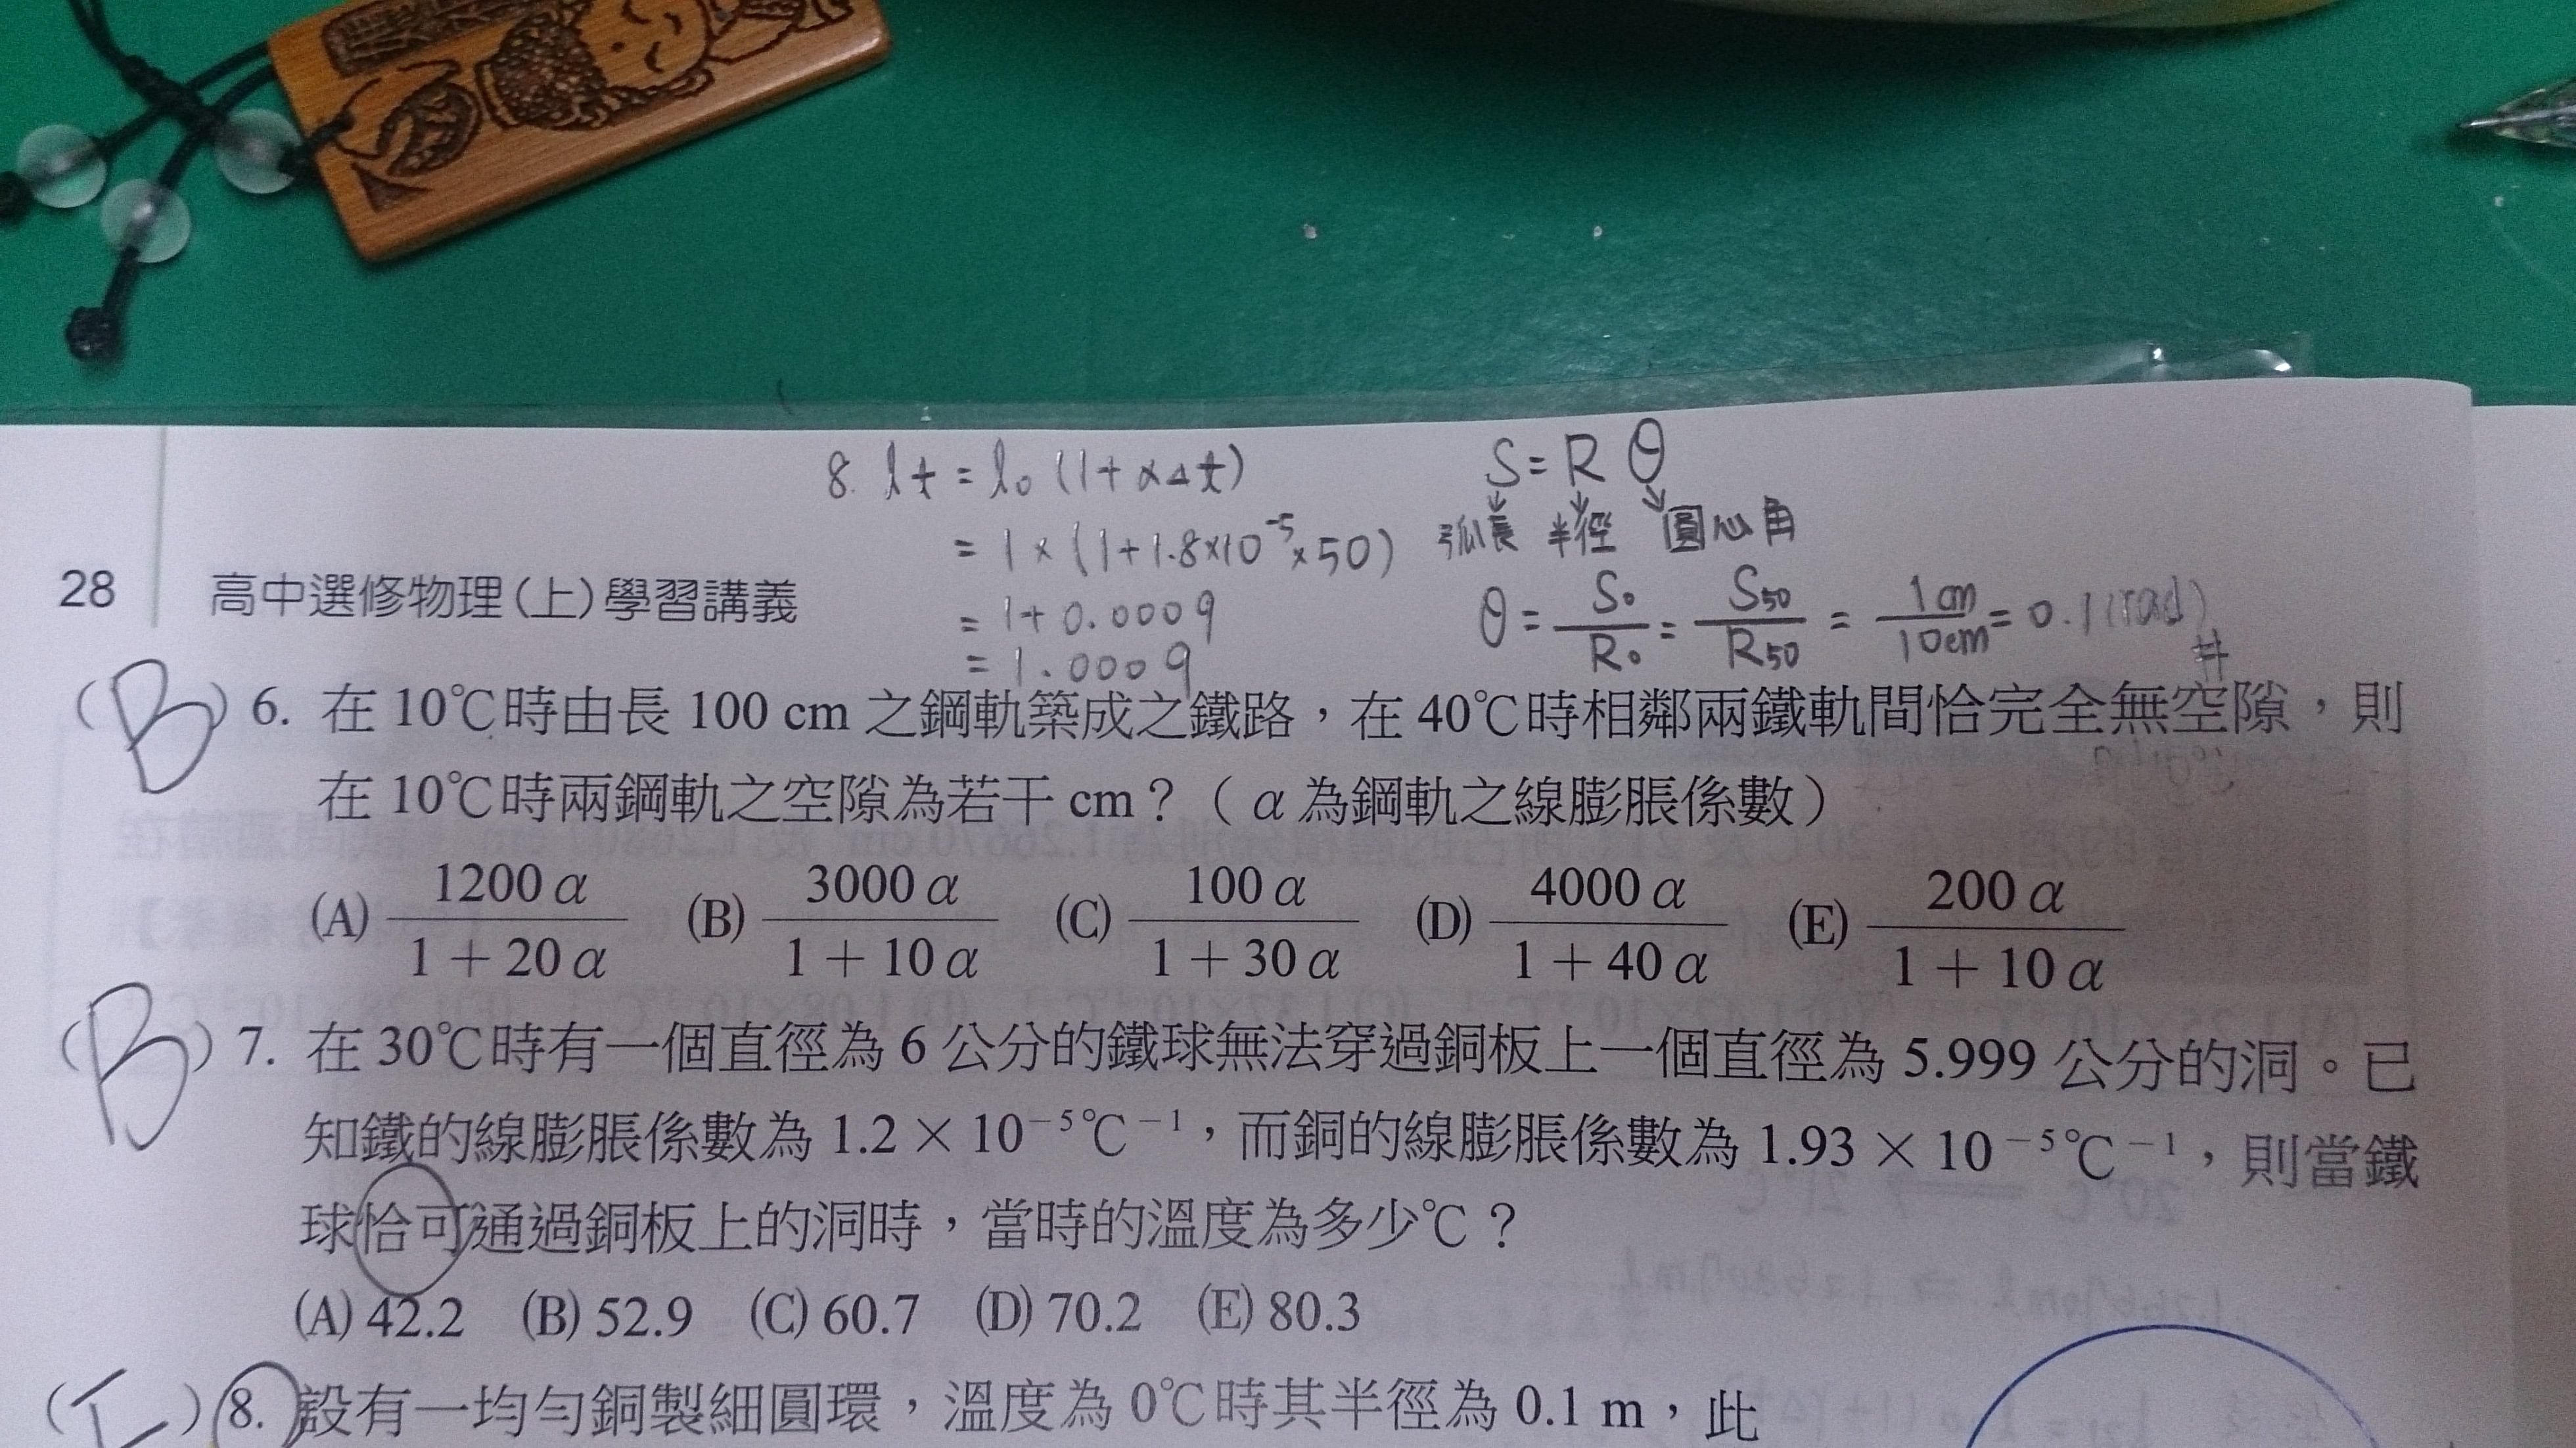 8. lt = l₀ (1+αΔt)
= 1×(1+1.8×10⁻⁵×50)
= 1+0.0009
= 1.0009
S=Rθ
弧長 半徑 圓心角
θ = S₀/R₀ = S₅₀/R₅₀ = 1cm/10cm = 0.1(rad) #
28 高中選修物理(上)學習講義
(B) 6. 在 10℃時由長 100 cm 之鋼軌築成之鐵路，在 40℃時相鄰兩鐵軌間恰完全無空隙，則
在 10℃時兩鋼軌之空隙為若干 cm？（α為鋼軌之線膨脹係數）
(A) 1200α/1＋20α (B) 3000α/1＋10α (C) 100α/1＋30α (D) 4000α/1＋40α (E) 200α/1＋10α
(B) 7. 在 30℃時有一個直徑為 6 公分的鐵球無法穿過銅板上一個直徑為 5.999 公分的洞。已
知鐵的線膨脹係數為 1.2 × 10⁻⁵℃⁻¹，而銅的線膨脹係數為 1.93 × 10⁻⁵℃⁻¹，則當鐵
球恰可通過銅板上的洞時，當時的溫度為多少℃？
(A) 42.2 (B) 52.9 (C) 60.7 (D) 70.2 (E) 80.3
8. 設有一均勻銅製細圓環，溫度為 0℃時其半徑為 0.1 m，此